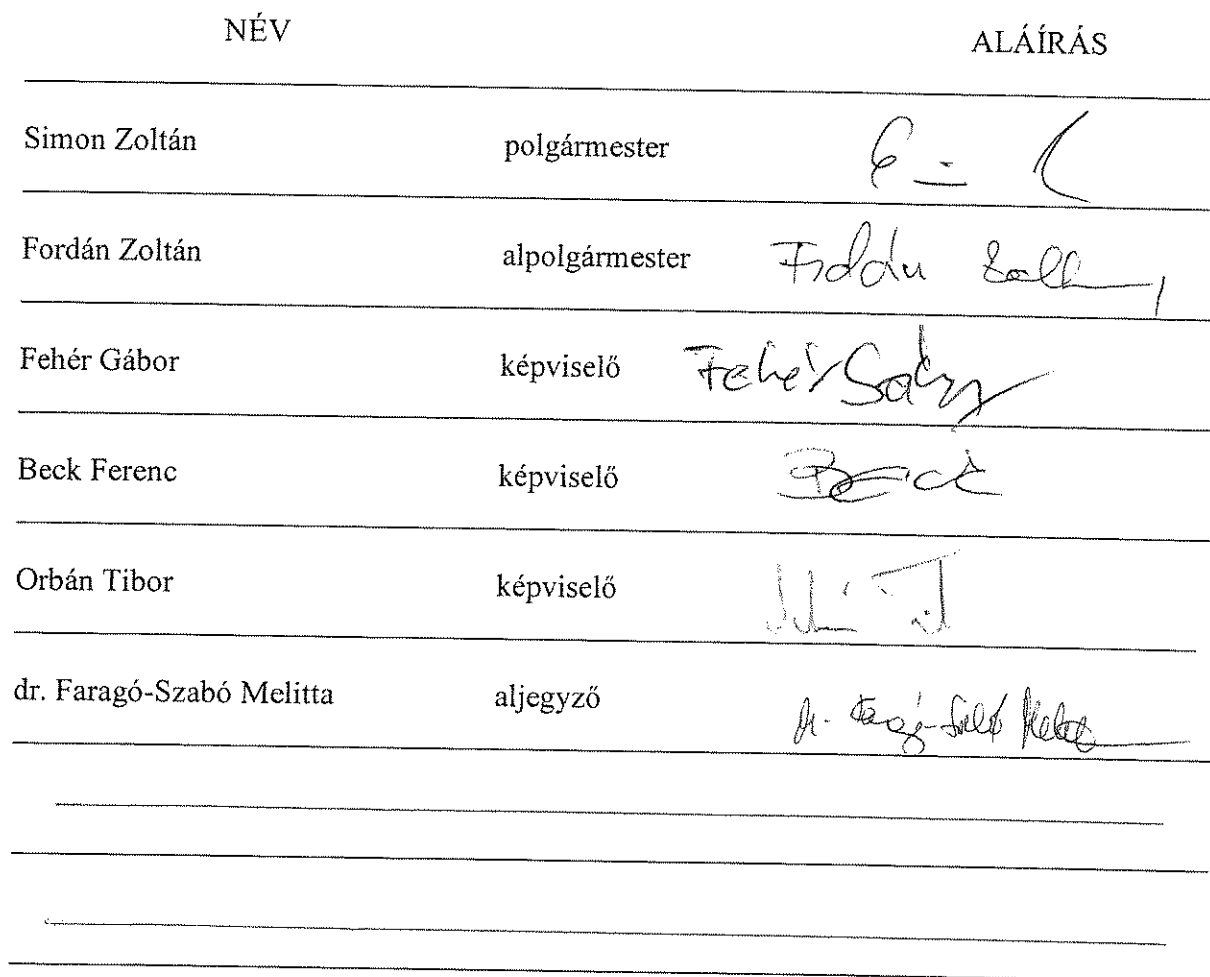 NÉV ALÁÍRÁS
Simon Zoltán polgármester
Fordán Zoltán alpolgármester
Fehér Gábor képviselő Fehér Gábor
Beck Ferenc képviselő Beck
Orbán Tibor képviselő
dr. Faragó-Szabó Melitta aljegyző